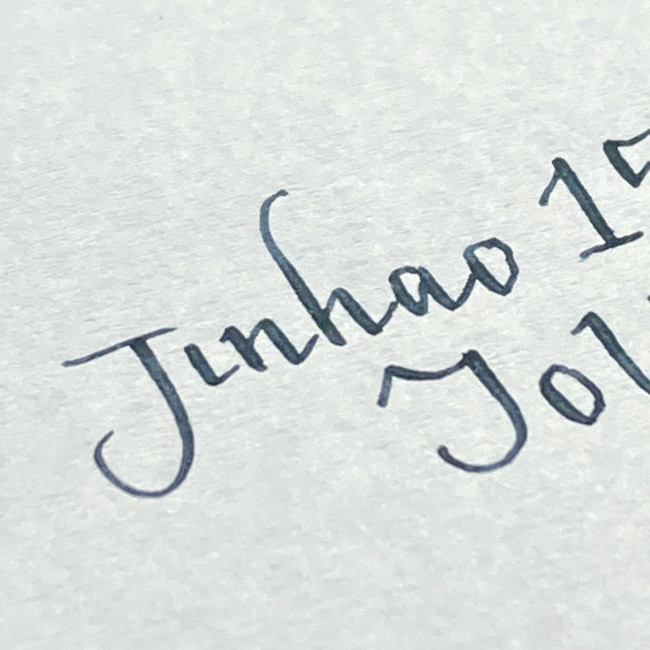 Jinhao 15
Jol